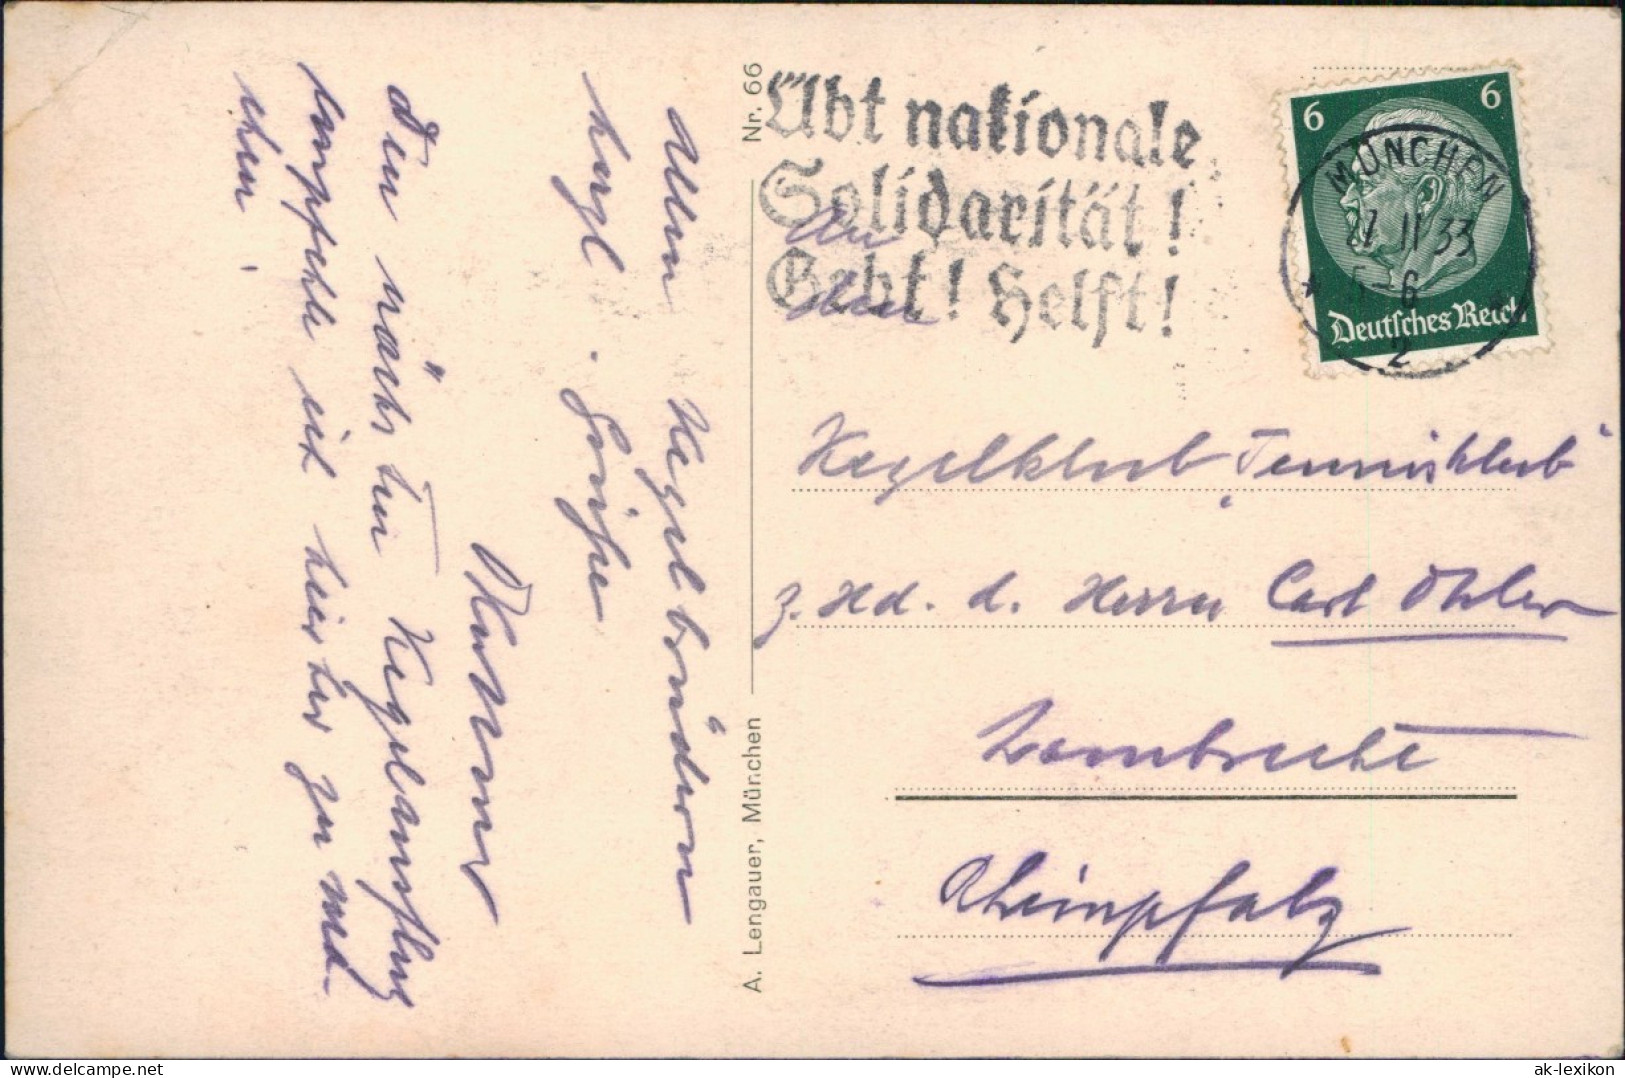 Allen Kegelbrüdern
herzl. Grüße
Den nächsten Kegelausflug
empfehle ich hierher zu mach-
chen!
Nr. 66
A. Lengauer, München
Übt nationale
Solidarität!
Gebt! Helft!
6 6
MÜNCHEN
27 11 33
5-6
2
Deutsches Reich
An
den
Kegelklub „Tennisklub“
z. Hd. d. Herrn Carl Ohler
Lambrecht
Rheinpfalz
ak-lexikon